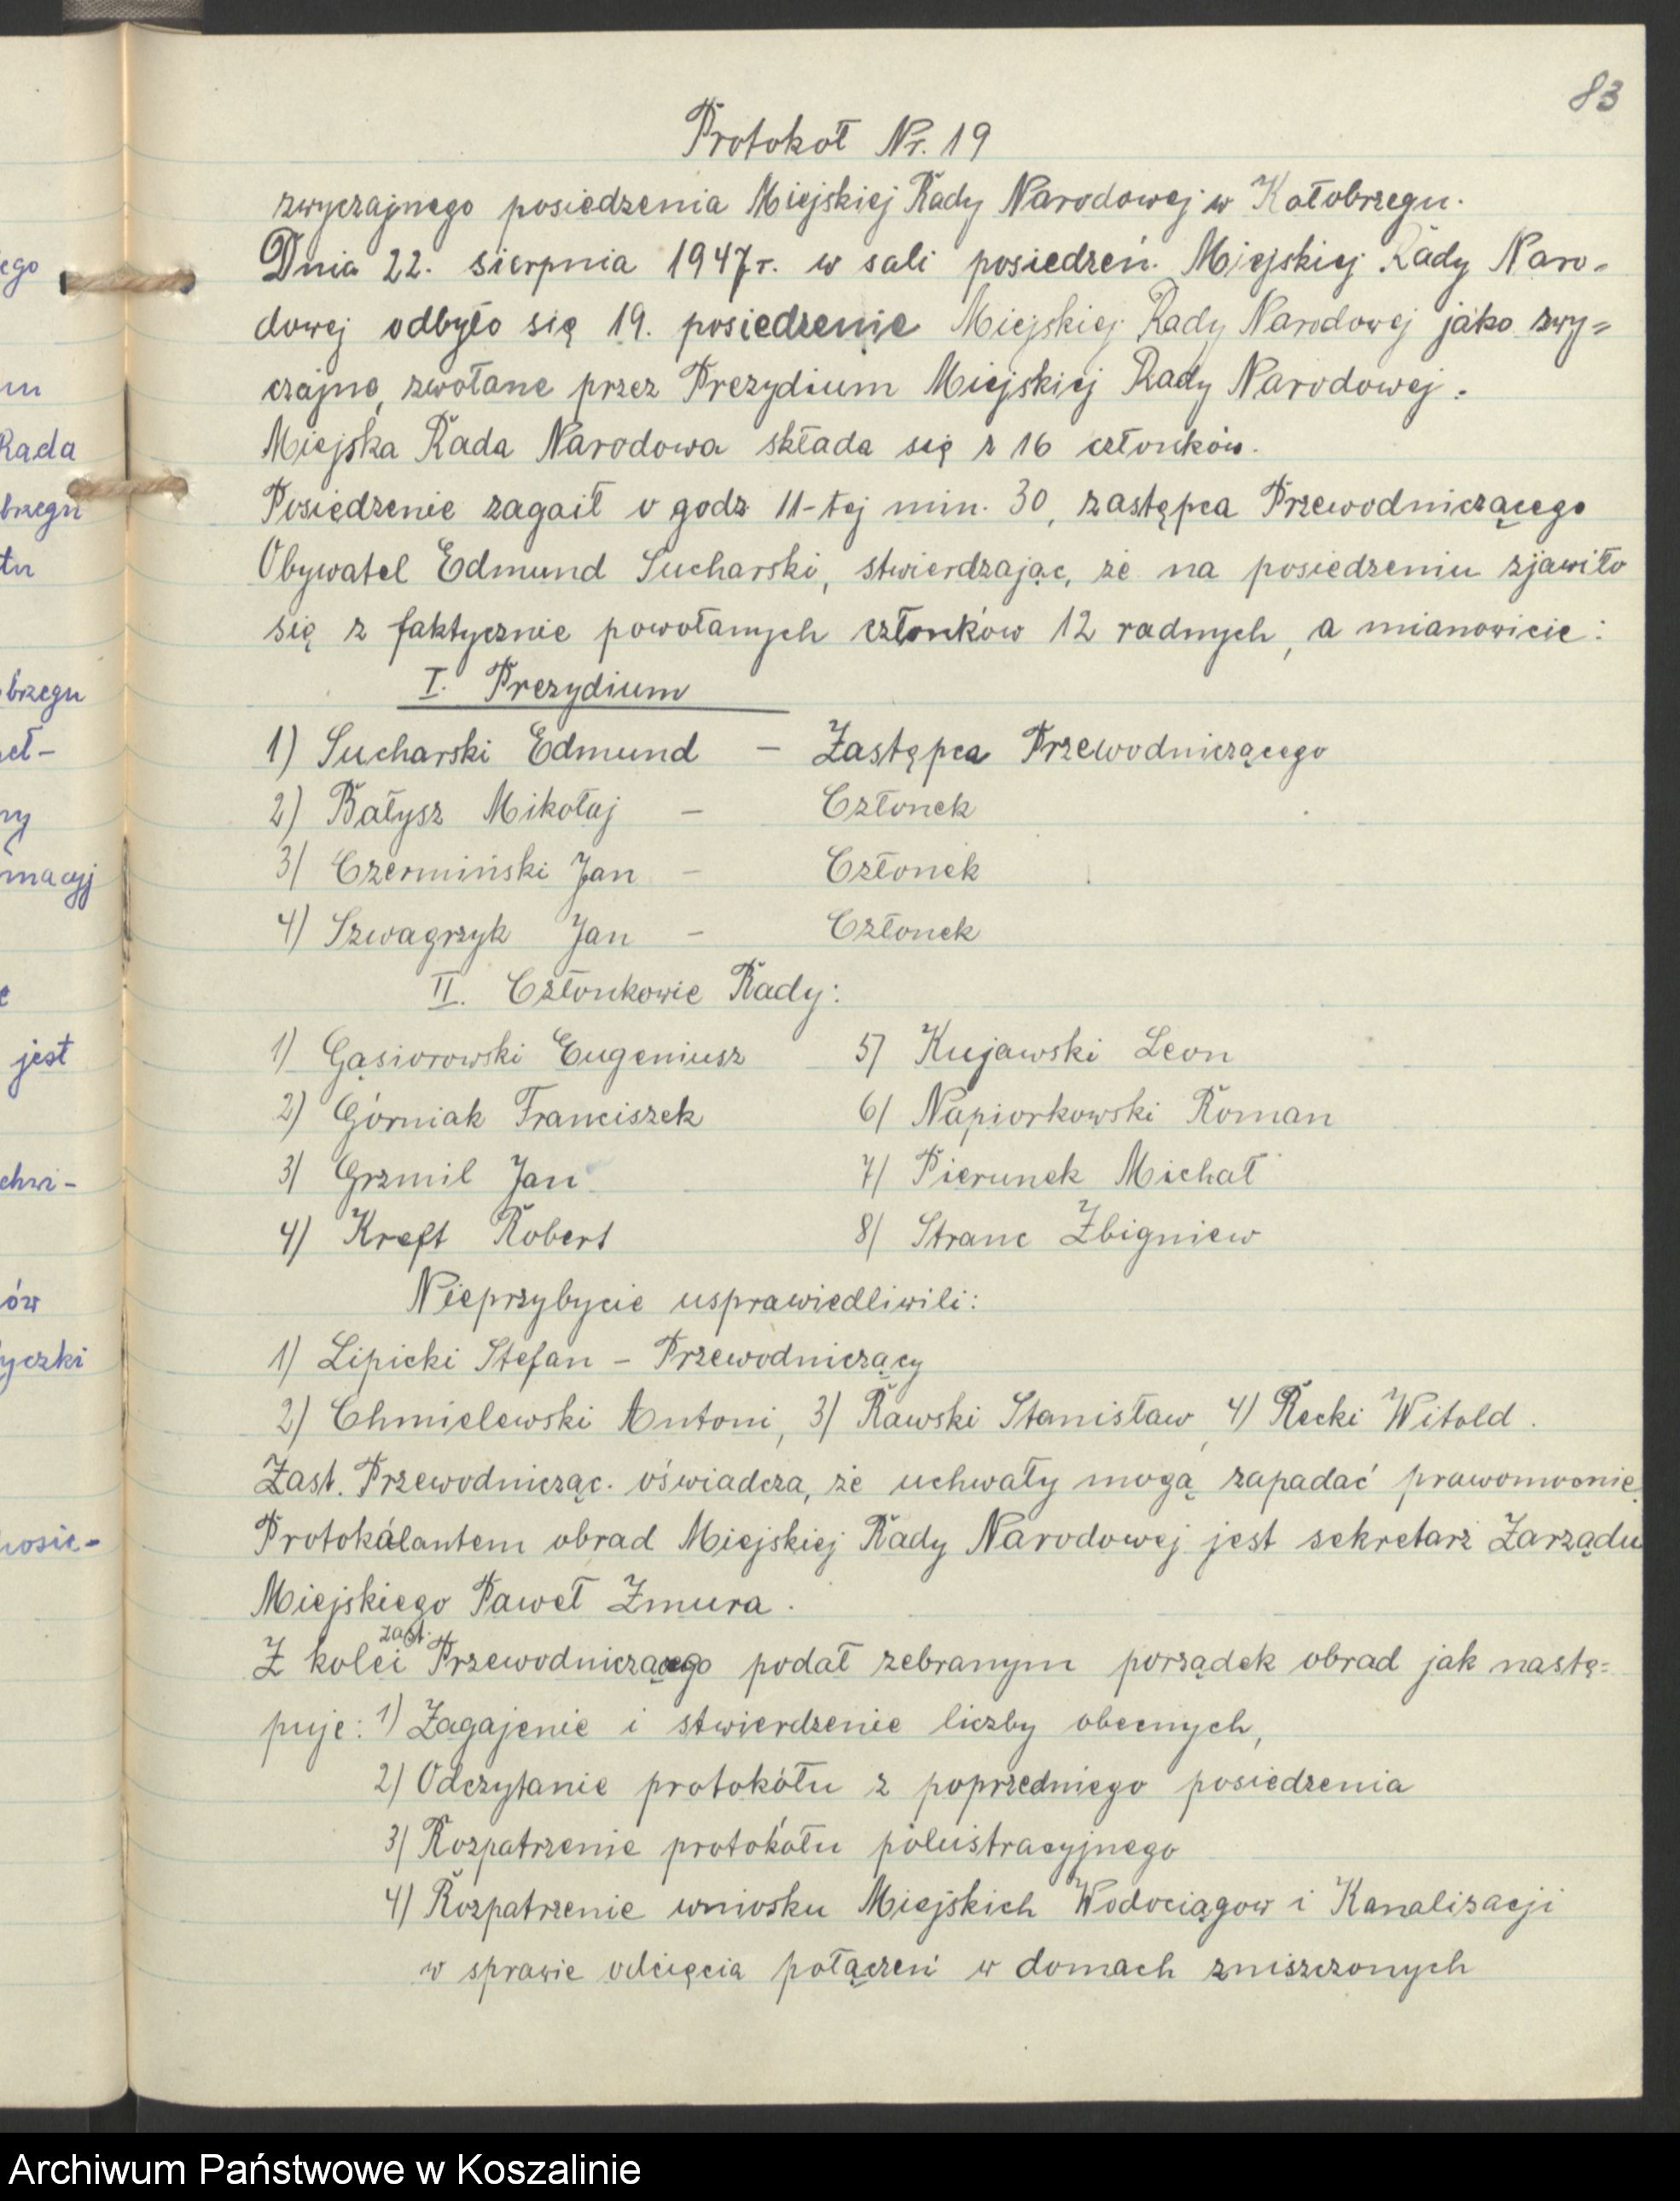 83
Protokół Nr. 19
zwyczajnego posiedzenia Miejskiej Rady Narodowej w Kołobrzegu.
Dnia 22. sierpnia 1947r. w sali posiedzeń Miejskiej Rady Naro-
dowej odbyło się 19. posiedzenie Miejskiej Rady Narodowej jako zwy=
czajne, zwołane przez Prezydium Miejskiej Rady Narodowej.
Miejska Rada Narodowa składa się z 16 członków.
Posiedzenie zagaił o godz 11-tej min. 30, zastępca Przewodniczącego
Obywatel Edmund Sucharski, stwierdzając, że na posiedzeniu zjawiło
się z faktycznie powołanych członków 12 radnych, a mianowicie:
I. Prezydium
1) Sucharski Edmund – Zastępca Przewodniczącego
2) Bałysz Mikołaj – Członek
3) Czermiński Jan – Członek
4) Szwagrzyk Jan – Członek
II. Członkowie Rady:
1) Gąsiorowski Eugeniusz 5) Kujawski Leon
2) Górniak Franciszek 6) Napiorkowski Roman
3) Grzmil Jan 7) Pierunek Michał
4) Kreft Robert 8) Stranc Zbigniew
Nieprzybycie usprawiedliwili:
1) Lipicki Stefan – Przewodniczący
2) Chmielewski Antoni, 3) Rawski Stanisław, 4) Recki Witold.
Zast. Przewodnicząc. oświadcza, że uchwały mogą zapadać prawomocnie.
Protokólantem obrad Miejskiej Rady Narodowej jest sekretarz Zarządu
Miejskiego Paweł Zmura.
zast.
Z kolei Przewodniczącego podał zebranym porządek obrad jak nastę=
puje: 1) Zagajenie i stwierdzenie liczby obecnych,
2) Odczytanie protokółu z poprzedniego posiedzenia
3) Rozpatrzenie protokółu polustracyjnego
4) Rozpatrzenie wniosku Miejskich Wodociągow i Kanalizacji
w sprawie odcięcia połączeń w domach zniszczonych
ego
Rada
brzegu
brzegu
macyj
jest
ów
Archiwum Państwowe w Koszalinie